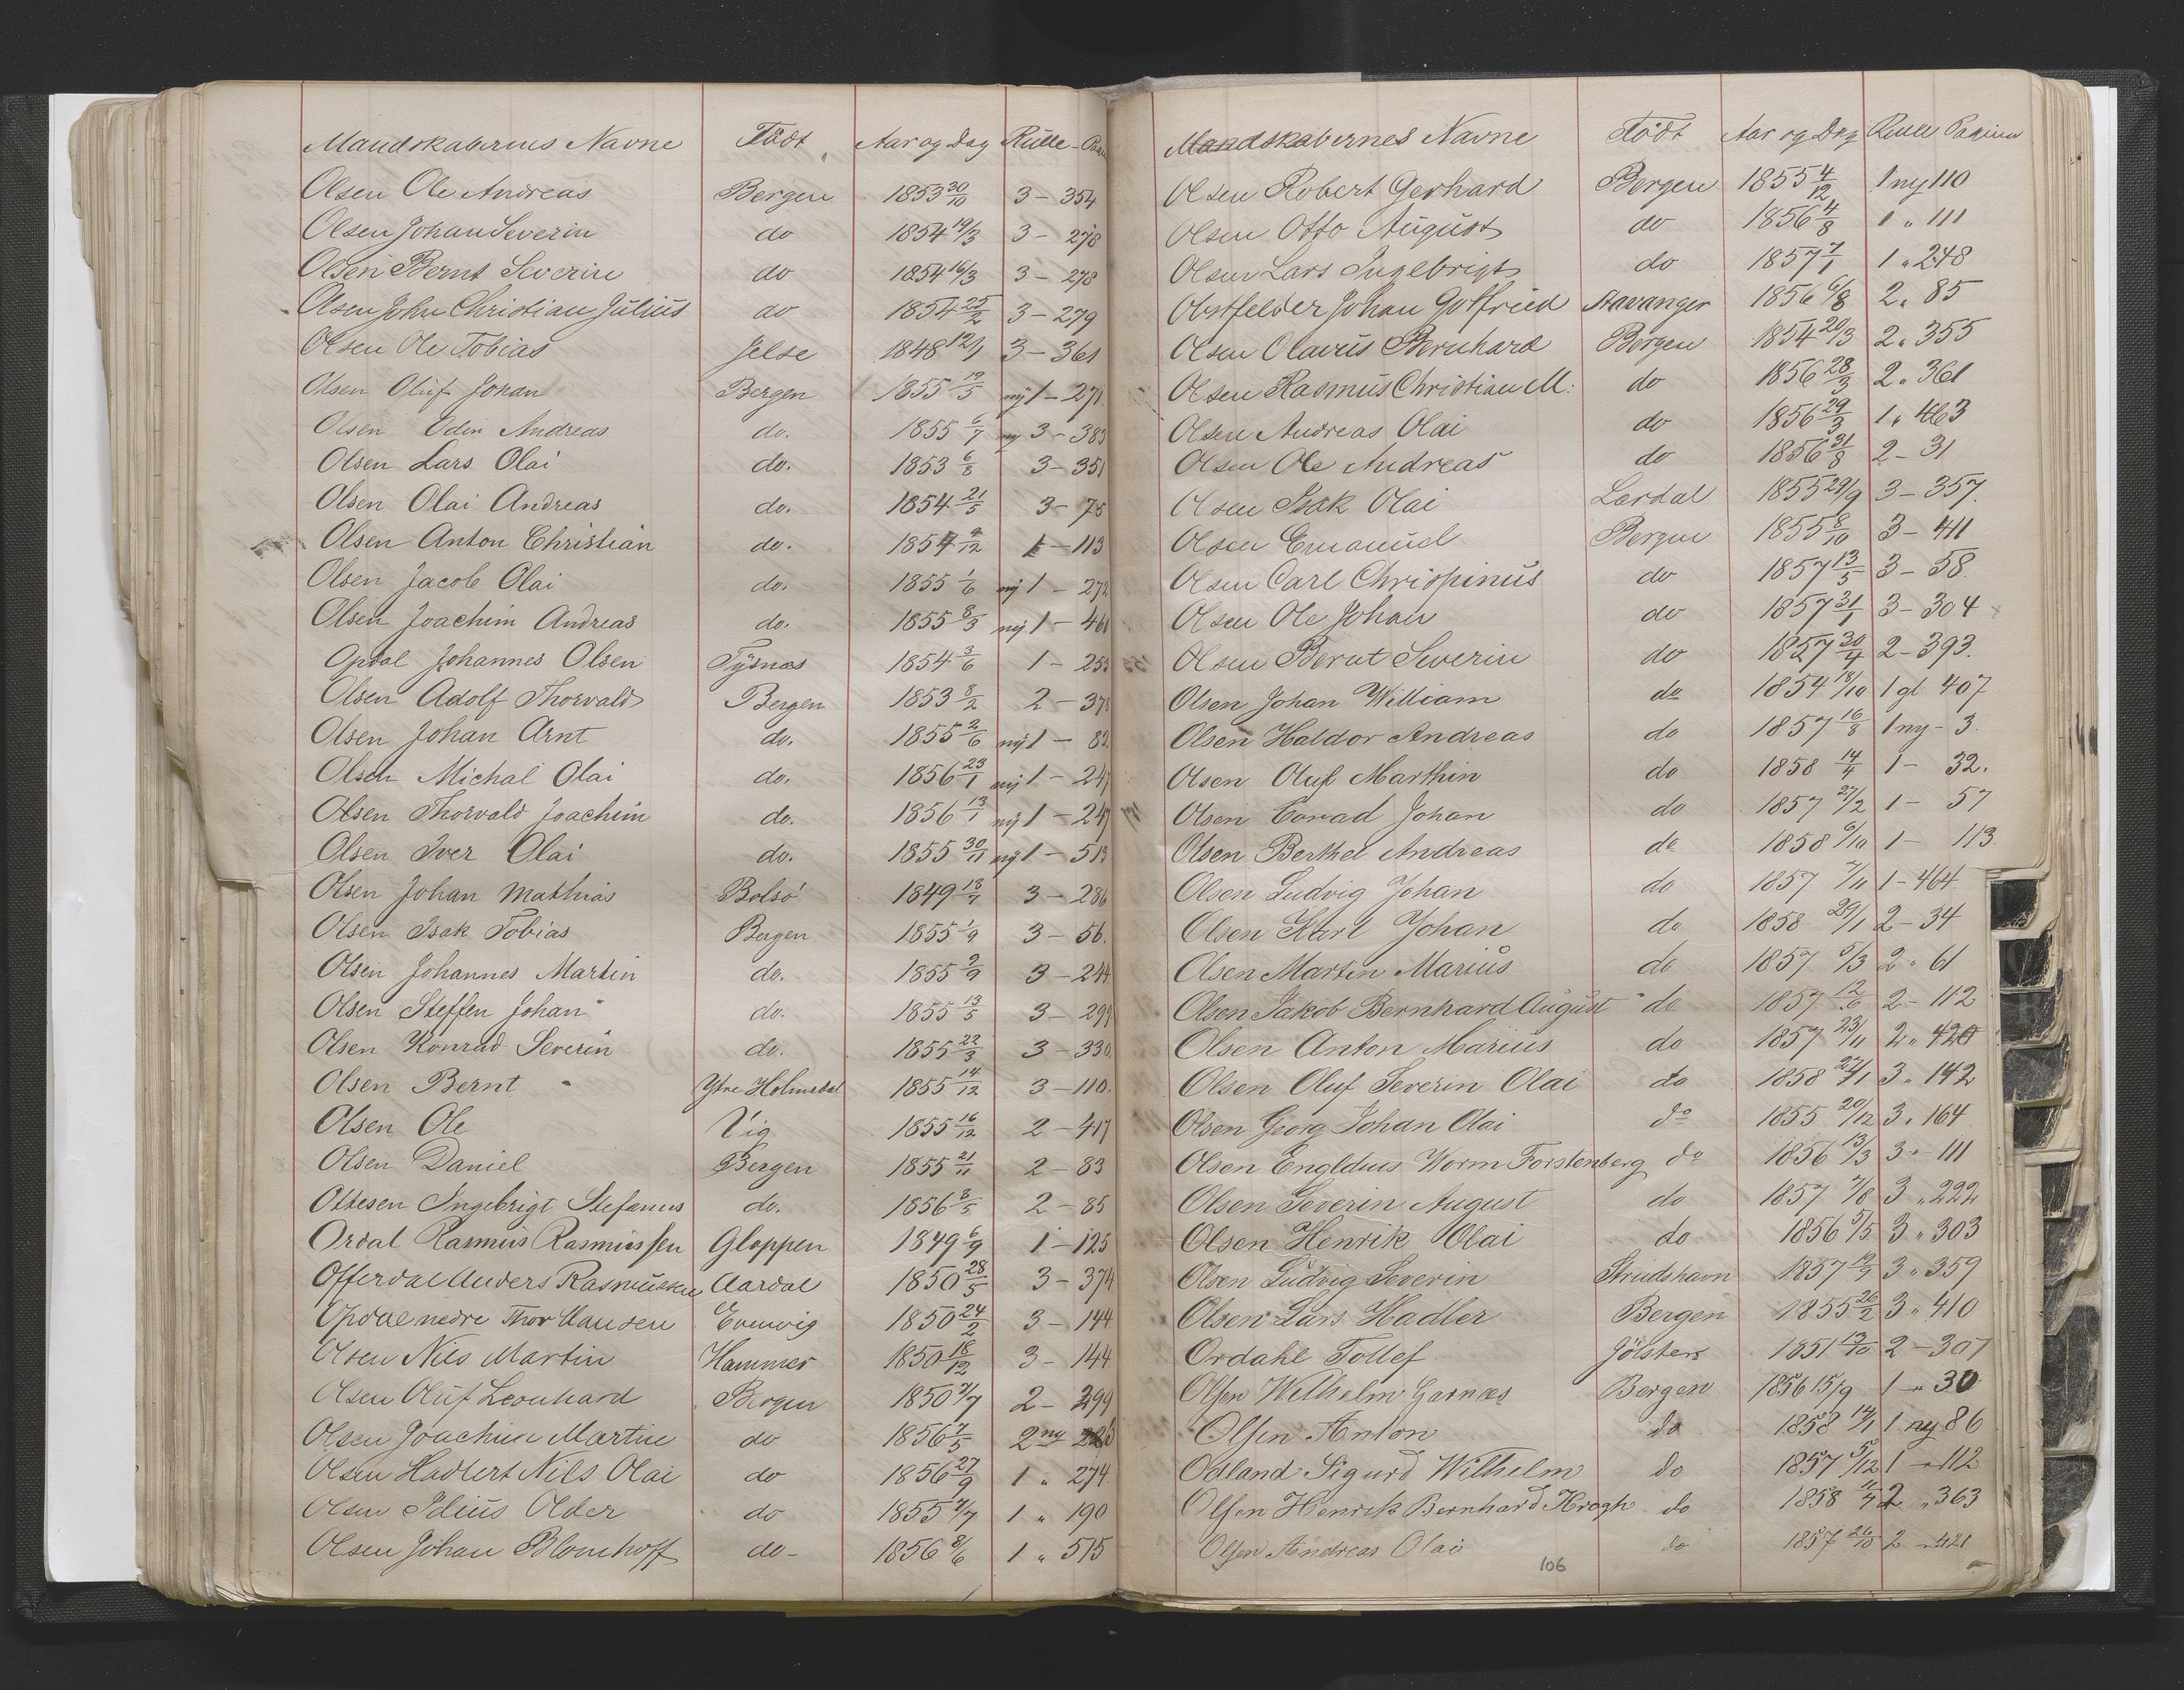 Mandskabernes Navne Födt Aar og Dag Rulle - Pagina
Olsen Ole Andreas Bergen 1853 30/10 3 - 354
Olsen Johan Severin do 1854 19/3 3 - 278
Olsen Bernt Severin do 1854 16/3 3 - 278
Olsen John Christian Julius do 1854 25/2 3 - 279
Olsen Ole Tobias Jelse 1848 12/1 3 - 361
Olsen Oluf Johan Bergen 1855 19/5 ny 1 - 271
Olsen Eden Andreas do. 1855 6/7 ny 3 - 383
Olsen Lars Olai do. 1853 6/8 3 - 351
Olsen Olai Andreas do. 1854 21/5 3 - 75
Olsen Anton Christian do. 1854 9/12 1 - 113
Olsen Jacob Olai do. 1855 1/6 ny 1 - 272
Olsen Joachim Andreas do. 1855 8/3 ny 1 - 461
Opdal Johannes Olsen Tysnæs 1854 3/6 1 - 253
Olsen Adolf Thorvald Bergen 1853 8/2 2 - 378
Olsen Johan Arnt do. 1855 2/6 ny 1 - 82
Olsen Michal Olai do. 1856 23/1 ny 1 - 247
Olsen Thorvald Joachim do. 1856 13/1 ny 1 - 247
Olsen Iver Olai do. 1855 30/11 ny 1 - 513
Olsen Johan Mathias Bolsö 1849 18/7 3 - 286
Olsen Isak Tobias Bergen 1855 1/9 3 - 56.
Olsen Johannes Martin do. 1855 2/9 3 - 244.
Olsen Steffen Johan do. 1855 13/5 3 - 299
Olsen Konrad Severin do. 1855 22/3 3 - 330.
Olsen Bernt Ytre Holmedal 1855 14/12 3 - 110.
Olsen Ole Vig 1855 16/12 2 - 417
Olsen Daniel Bergen 1855 21/11 2 - 83
Ottesen Ingebrigt Stefanus do. 1856 8/5 2 - 85
Ordal Rasmus Rasmussen Gloppen 1849 6/9 1 - 125
Offerdal Anders Rasmussen Aardal 1850 28/5 3 - 374
Opdal nedre Thor Hansen Evenvig 1850 24/2 3 - 144
Olsen Nils Martin Hammer 1850 18/12 3 - 144
Olsen Oluf Leonhard Bergen 1850 7/7 2 - 299
Olsen Joachim Martin do 1856 7/5 2 ny
Olsen Hadlert Nils Olai do 1856 27/9 1 " 274
Olsen Idius Older do 1855 7/7 1 " 190
Olsen Johan Blomhoff do - 1856 8/6 1 " 515
Mandskabernes Navne Födt Aar og Dag Rulle Pagina
Olsen Robert Gerhard Bergen 1855 4/12 1 ny 110
Olsen Otto August do 1856 4/8 1 " 111
Olsen Lars Ingebrigt do 1857 7/1 1 " 248
Obstfelder Johan Gotfried Stavanger 1856 6/8 2 " 85
Olsen Olavus Bernhard Bergen 1854 20/3 2 " 355
Olsen Rasmus Christian M: do 1856 28/3 2 " 361
Olsen Andreas Olai do 1856 29/3 1 " 463
Olsen Ole Andreas do 1856 31/8 2 - 31
Olsen Isak Olai Lerdal 1855 29/9 3 - 357.
Olsen Emanuel Bergen 1855 8/10 3 - 411
Olsen Carl Chrispinus do 1857 13/5 3 - 58.
Olsen Ole Johan do 1857 31/1 3 - 304 x
Olsen Bernt Severin do 1857 30/4 2 - 393.
Olsen Johan William do 1854 18/10 1 gl 407
Olsen Haldor Andreas do 1857 16/8 1 ny - 3.
Olsen Oluf Marthin do 1858 14/4 1 - 32.
Olsen Conrad Johan do 1857 27/2 1 - 57
Olsen Berthel Andreas do 1858 6/10 1 - 113
Olsen Ludvig Johan do 1857 7/11 1 - 464.
Olsen Karl Johan do 1858 29/1 2 - 34
Olsen Martin Marius do 1857 5/3 2 " 61
Olsen Jakob Bernhard August do 1857 12/6 2 - 112
Olsen Anton Marius do 1857 23/11 2 " 420
Olsen Oluf Severin Olai do 1858 27/1 3 " 142
Olsen Georg Johan Olai do 1855 20/12 3 " 164
Olsen Engldus Worm Forstenberg do 1856 13/3 3 " 111
Olsen Severin August do 1857 7/8 3 " 222
Olsen Henrik Olai do 1856 5/5 3 " 303
Olsen Ludvig Severin Strudshavn 1857 19/9 3 " 359
Olsen Lars Hadler Bergen 1855 26/2 3 " 410
Ordahl Tollef Jölster 1851 13/10 2 - 307
Olsen Wilhelm Garnæs Bergen 1856 15/9 1 - " 30
Olsen Anton do 1858 14/1 1 ny 86
Odland Sigurd Wilhelm do 1857 5/12 1 - 112
Olsen Henrik Bernhard Krogh do 1858 11/4 2 " 363
Olsen Andreas Olai do 1857 26/10 2 - 421
106